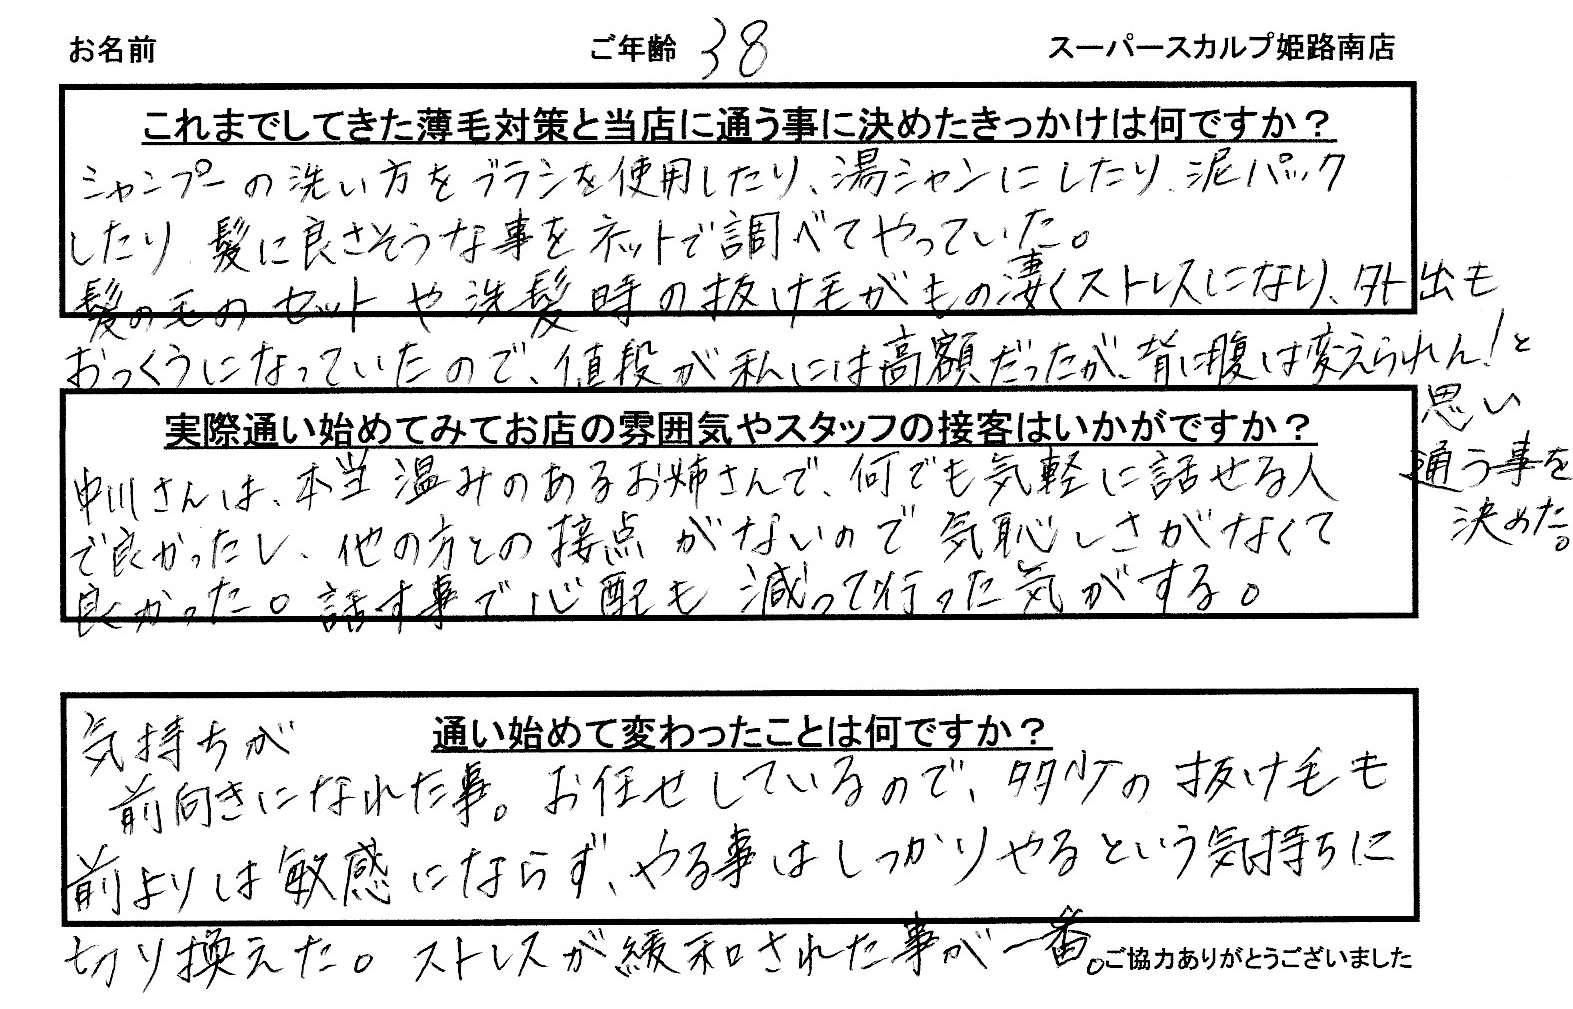 お名前 ご年齢 38 スーパースカルプ姫路南店
これまでしてきた薄毛対策と当店に通う事に決めたきっかけは何ですか？
シャンプーの洗い方をブラシを使用したり、湯シャンにしたり、泥パック
したり、髪に良さそうな事をネットで調べてやっていた。
髪の毛のセットや洗髪時の抜け毛がもの凄くストレスになり、外出も
おっくうになっていたので、値段が私には高額だったが、背に腹は変えられん！と
思い
通う事を
決めた。
実際通い始めてみてお店の雰囲気やスタッフの接客はいかがですか？
中川さんは、本当温みのあるお姉さんで、何でも気軽に話せる人
で良かったし、他の方との接点がないので気恥しさがなくて
良かった。話す事で心配も減って行った気がする。
通い始めて変わったことは何ですか？
気持ちが
前向きになれた事。お任せしているので、多少の抜け毛も
前よりは敏感にならず、やる事はしっかりやるという気持ちに
切り換えた。ストレスが緩和された事が一番。
ご協力ありがとうございました